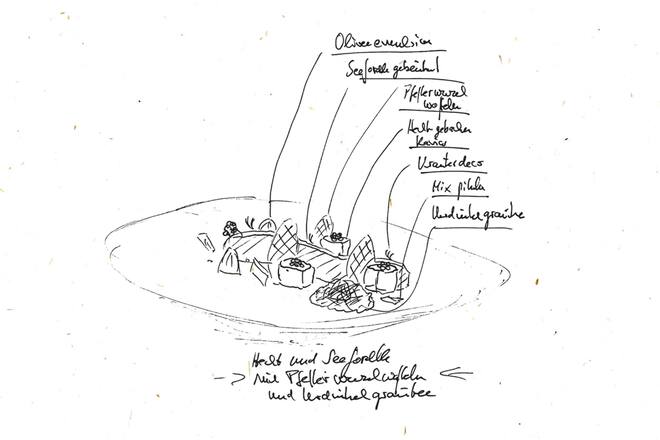 Olivenemulsion
Seeforelle gebeizt
Pfefferwurzel
waffeln
Hecht gebacken
Kaviar
Kräuterdeco
Mix pikles
Urdinkelgraupe
Hecht und Seeforelle
mit Pfefferwurzelwaffeln
und Urdinkelgraupen